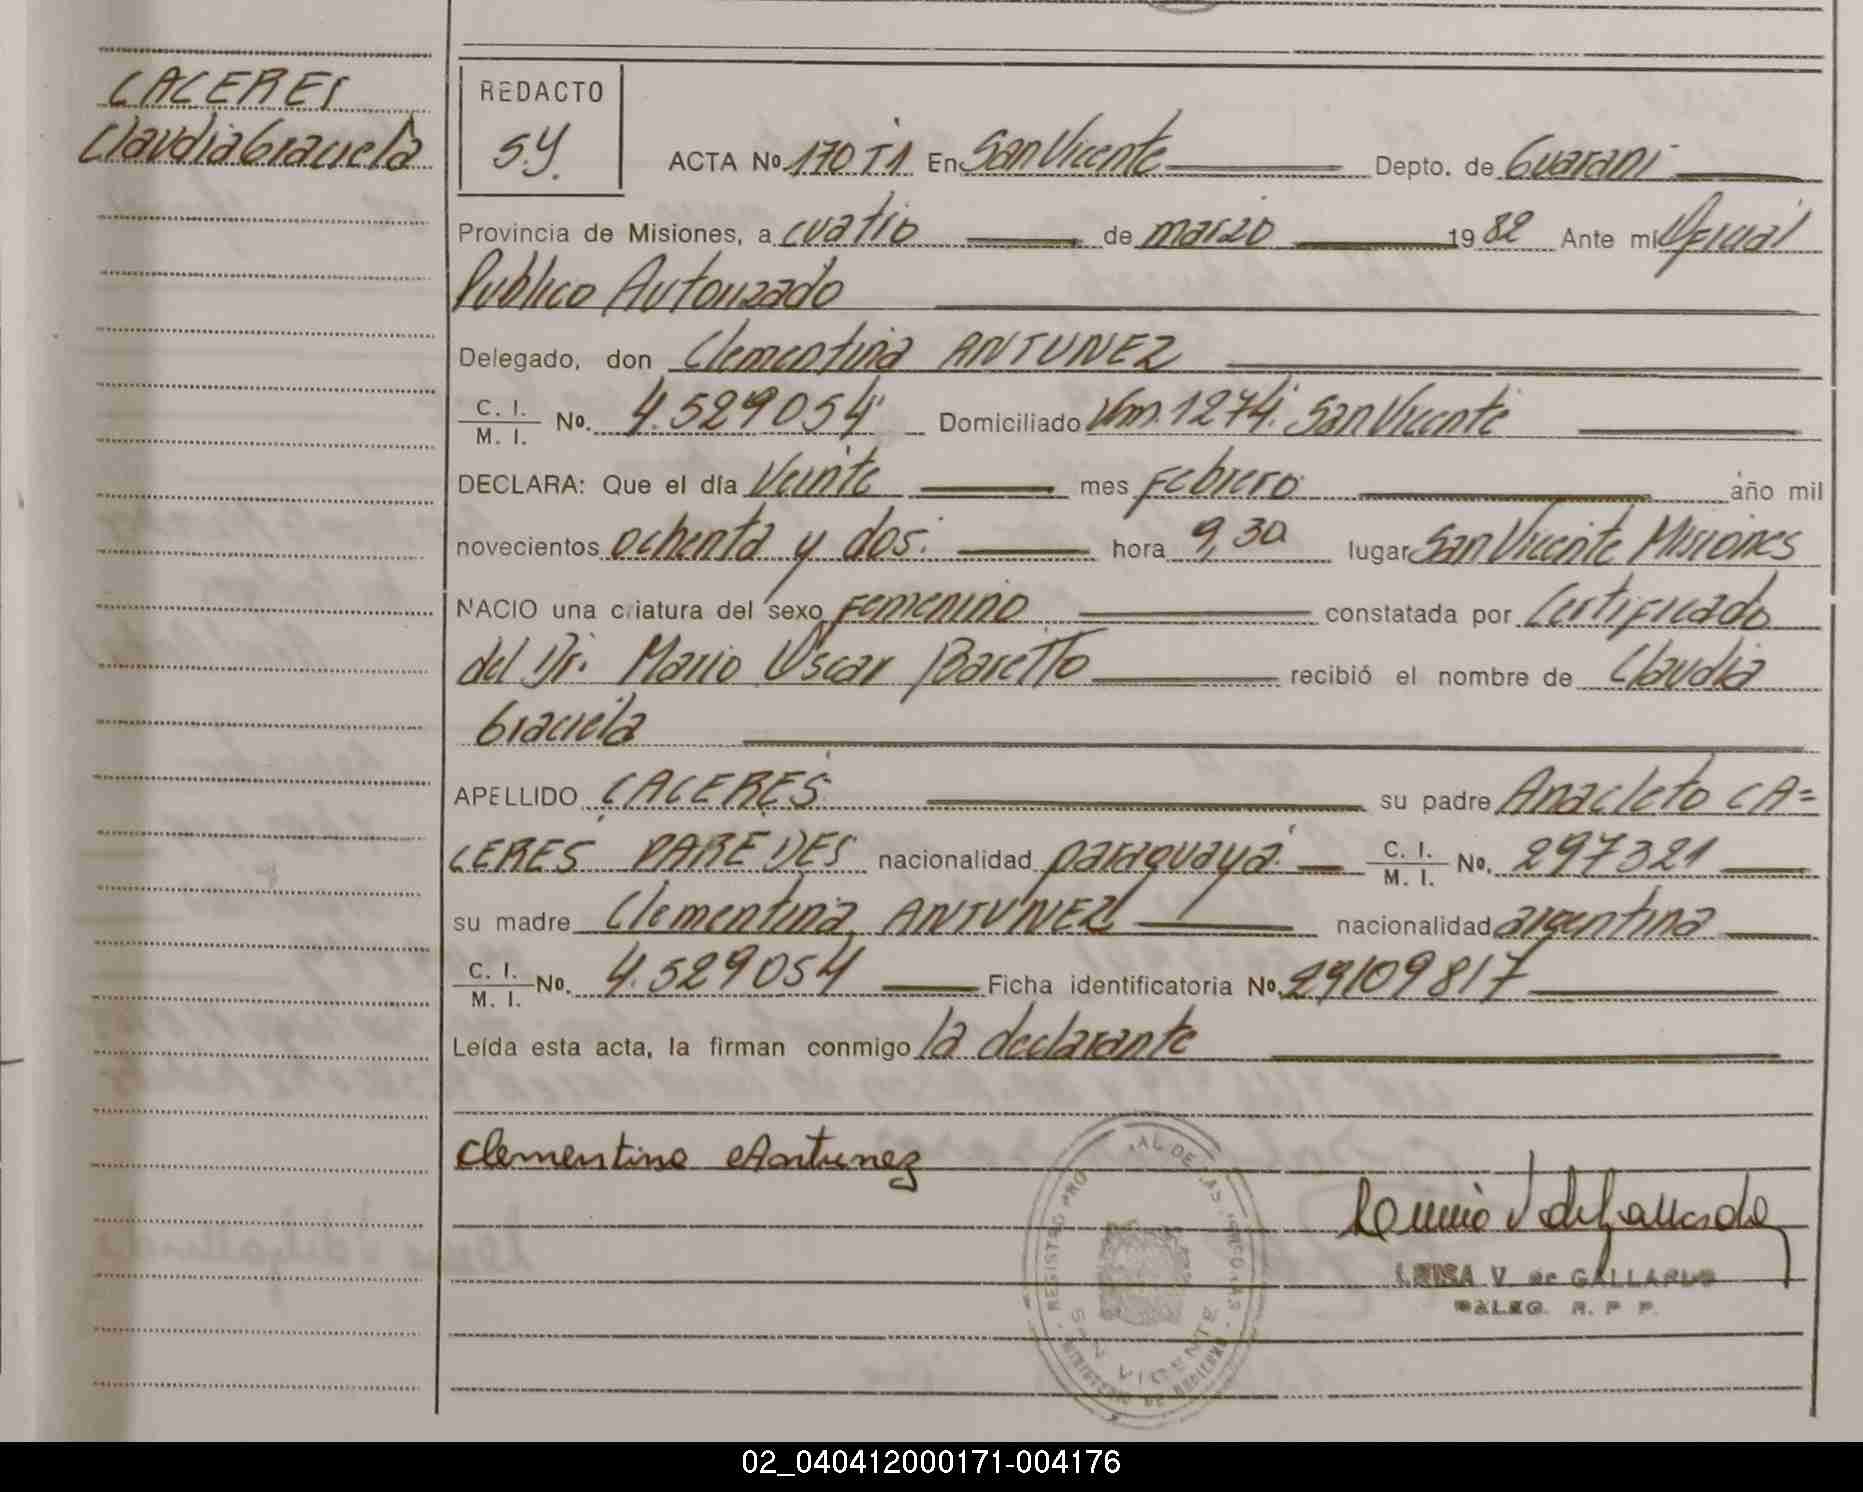 CACERES
Claudia Graciela
REDACTO
S.Y.
ACTA No. 170 T1 En San Vicente Depto. de Guaraní
Provincia de Misiones, a cuatro de marzo 1982 Ante mi Oficial
Publico Autorizado
Delegado, don Clementina ANTUNEZ
C. I. / M. I. No. 4.529054 Domiciliado Km. 1274. San Vicente
DECLARA: Que el día Veinte mes Febrero año mil
novecientos ochenta y dos. hora 9,30 lugar San Vicente Misiones
NACIO una criatura del sexo Femenino constatada por Certificado
del Dr. Mario Oscar Baretto recibió el nombre de Claudia
Graciela
APELLIDO CACERES su padre Anacleto CA=
CERES PAREDES nacionalidad paraguaya C. I. / M. I. No. 297321
su madre Clementina ANTUNEZ nacionalidad argentina
C. I. / M. I. No. 4.529054 Ficha identificatoria No. 29109817
Leída esta acta, la firman conmigo la declarante
Clementina Antunez
LUISA V. de GALLARDO
DALEG. R. P. P.
REGISTRO PRO AL DE LAS PERSONAS
SAN VICENTE
02_040412000171-004176